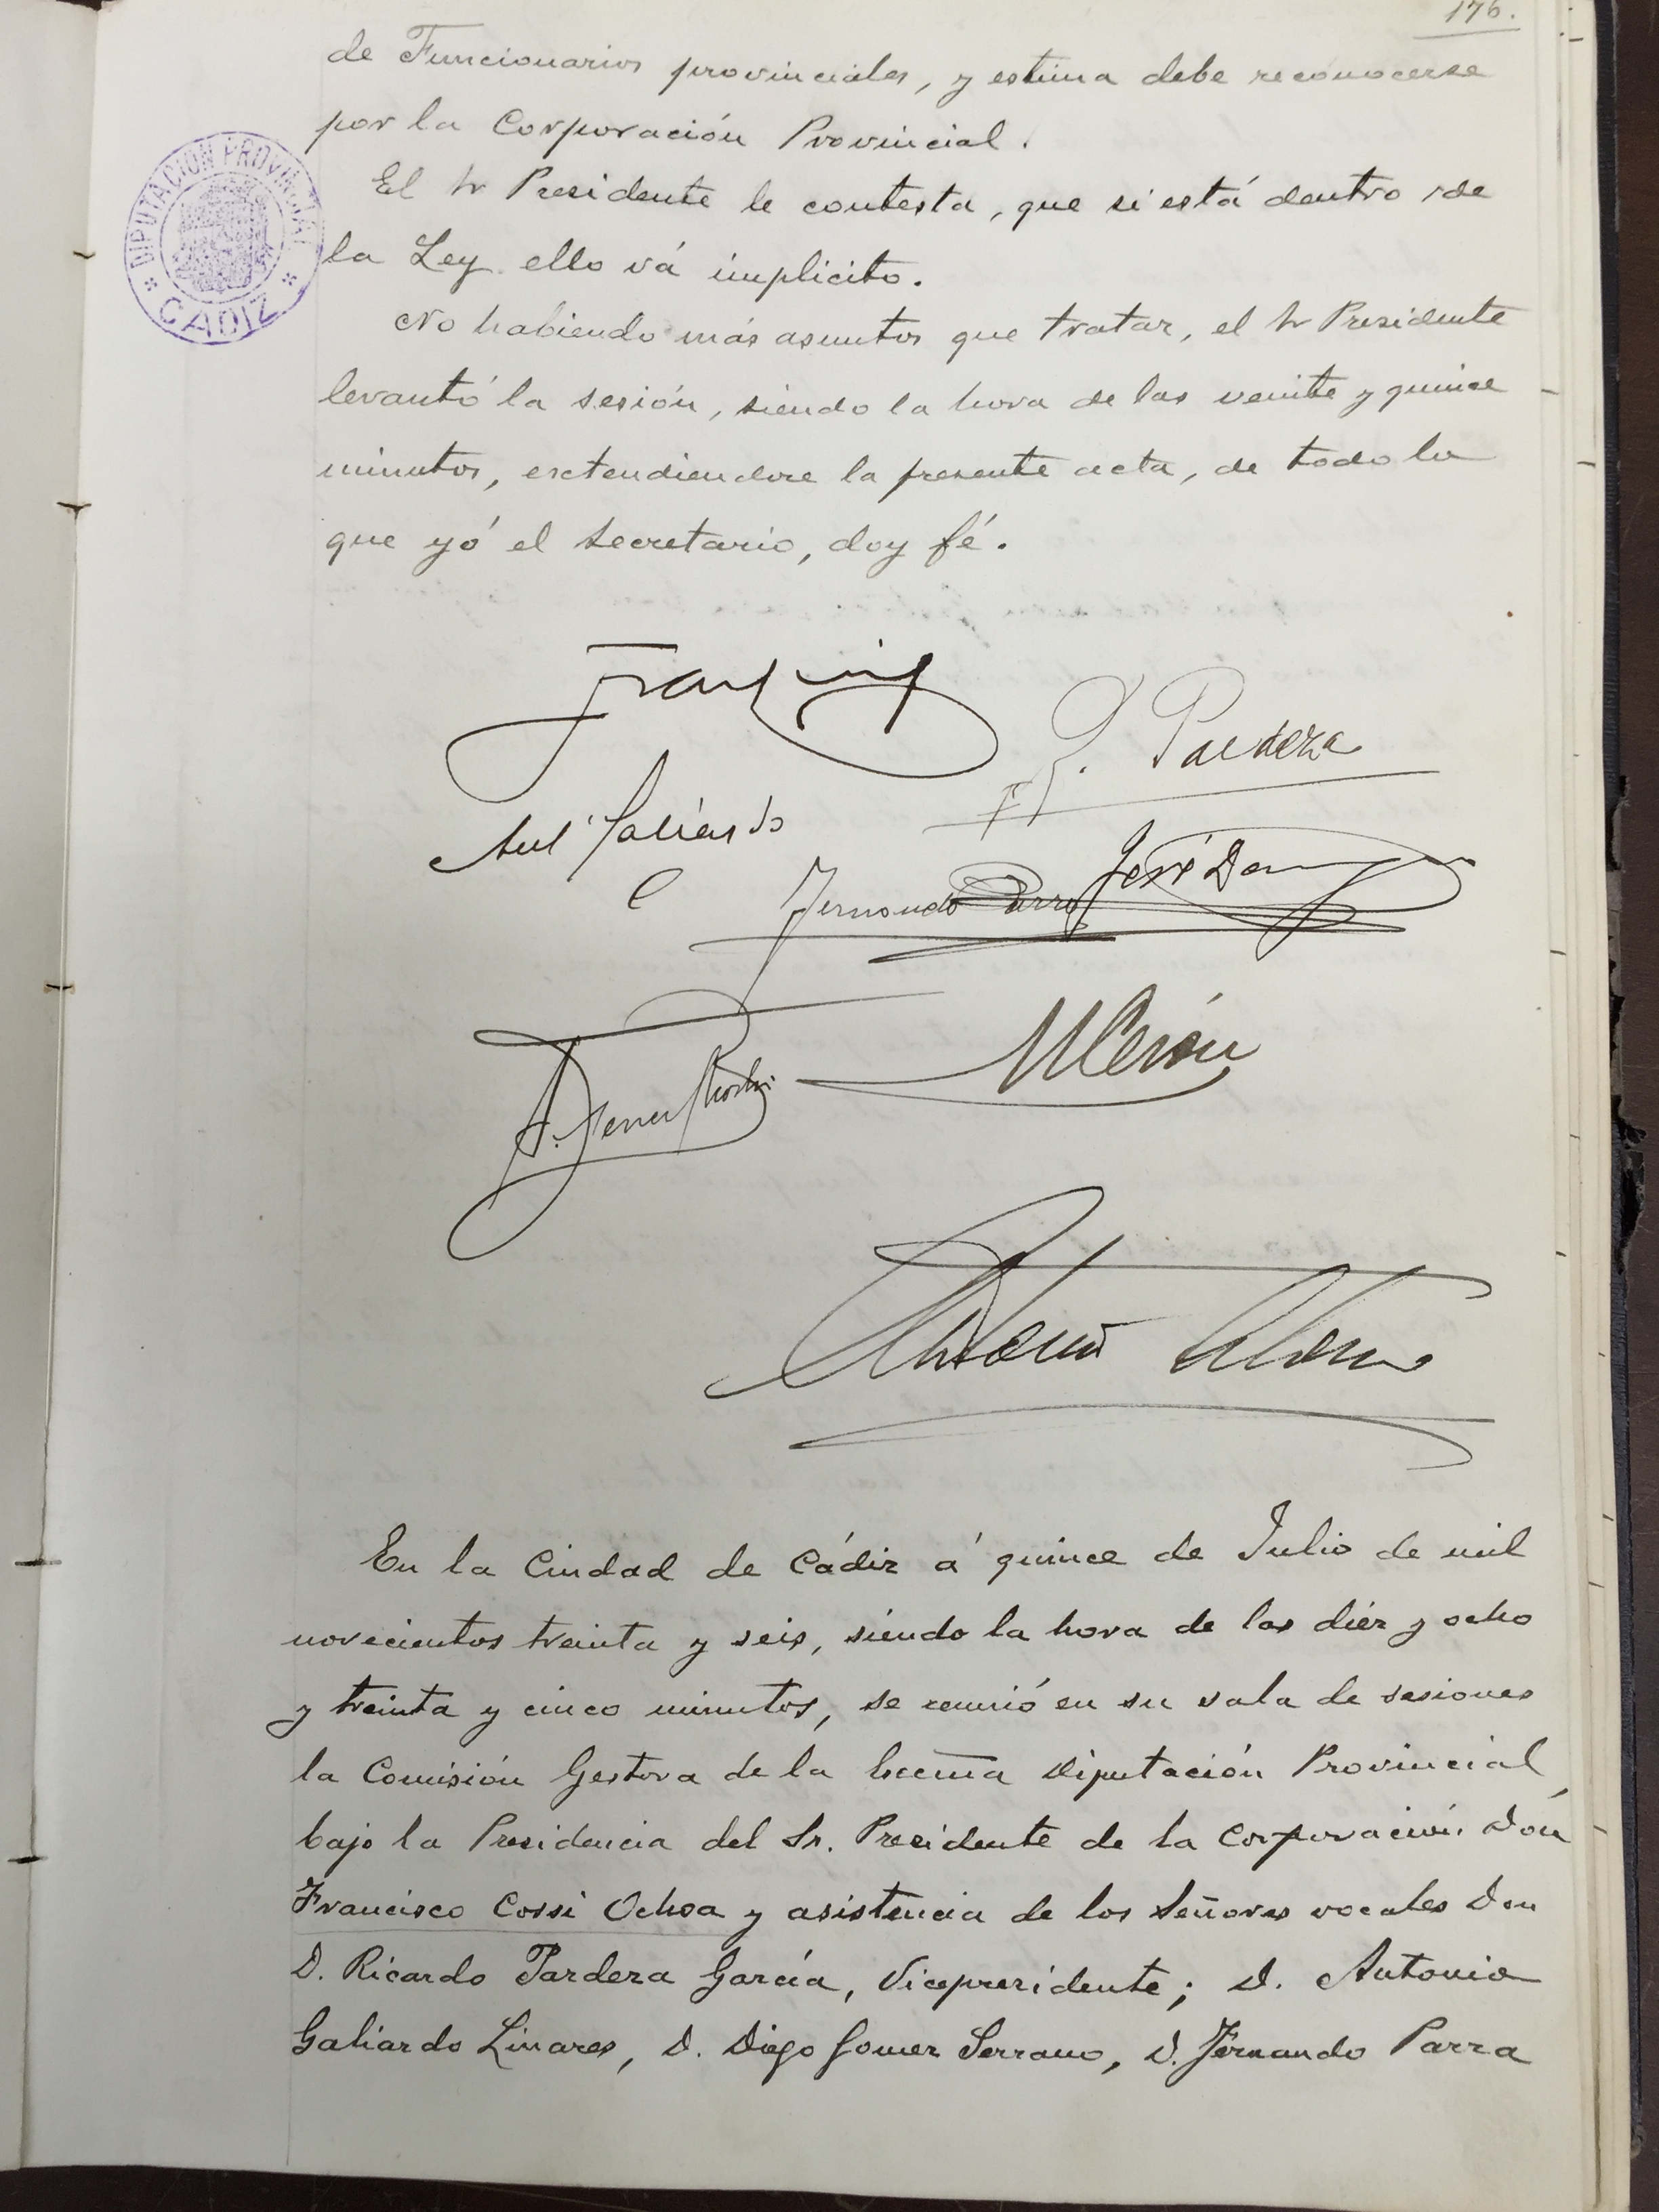 176.
de Funcionarios provinciales, y estima debe reconocerse
por la Corporación Provincial.
El Sr Presidente le contesta, que si está dentro de
la Ley ello vá implicito.
No habiendo más asuntos que tratar, el Sr Presidente
levantó la sesión, siendo la hora de las veinte y quince
minutos, extendiendose la presente acta, de todo lo
que yó el Secretario, doy fé.
DIPUTACION PROVINCIAL
* CADIZ *
R. Pardeza
Antº Galiardo
Fernando Parra
José
M Cerón
Antonio
En la Ciudad de Cádiz á quince de Julio de mil
novecientos treinta y seis, siendo la hora de las diéz y ocho
y treinta y cinco minutos, se reunió en su sala de sesiones
la Comisión Gestora de la Excma Diputación Provincial,
bajo la Presidencia del Sr. Presidente de la Corporación Don
Francisco Cossi Ochoa y asistencia de los Señores vocales Don
D. Ricardo Pardeza García, Vicepresidente; D. Antonio
Galiardo Linares, D. Diego Gomez Serrano, D. Fernando Parra